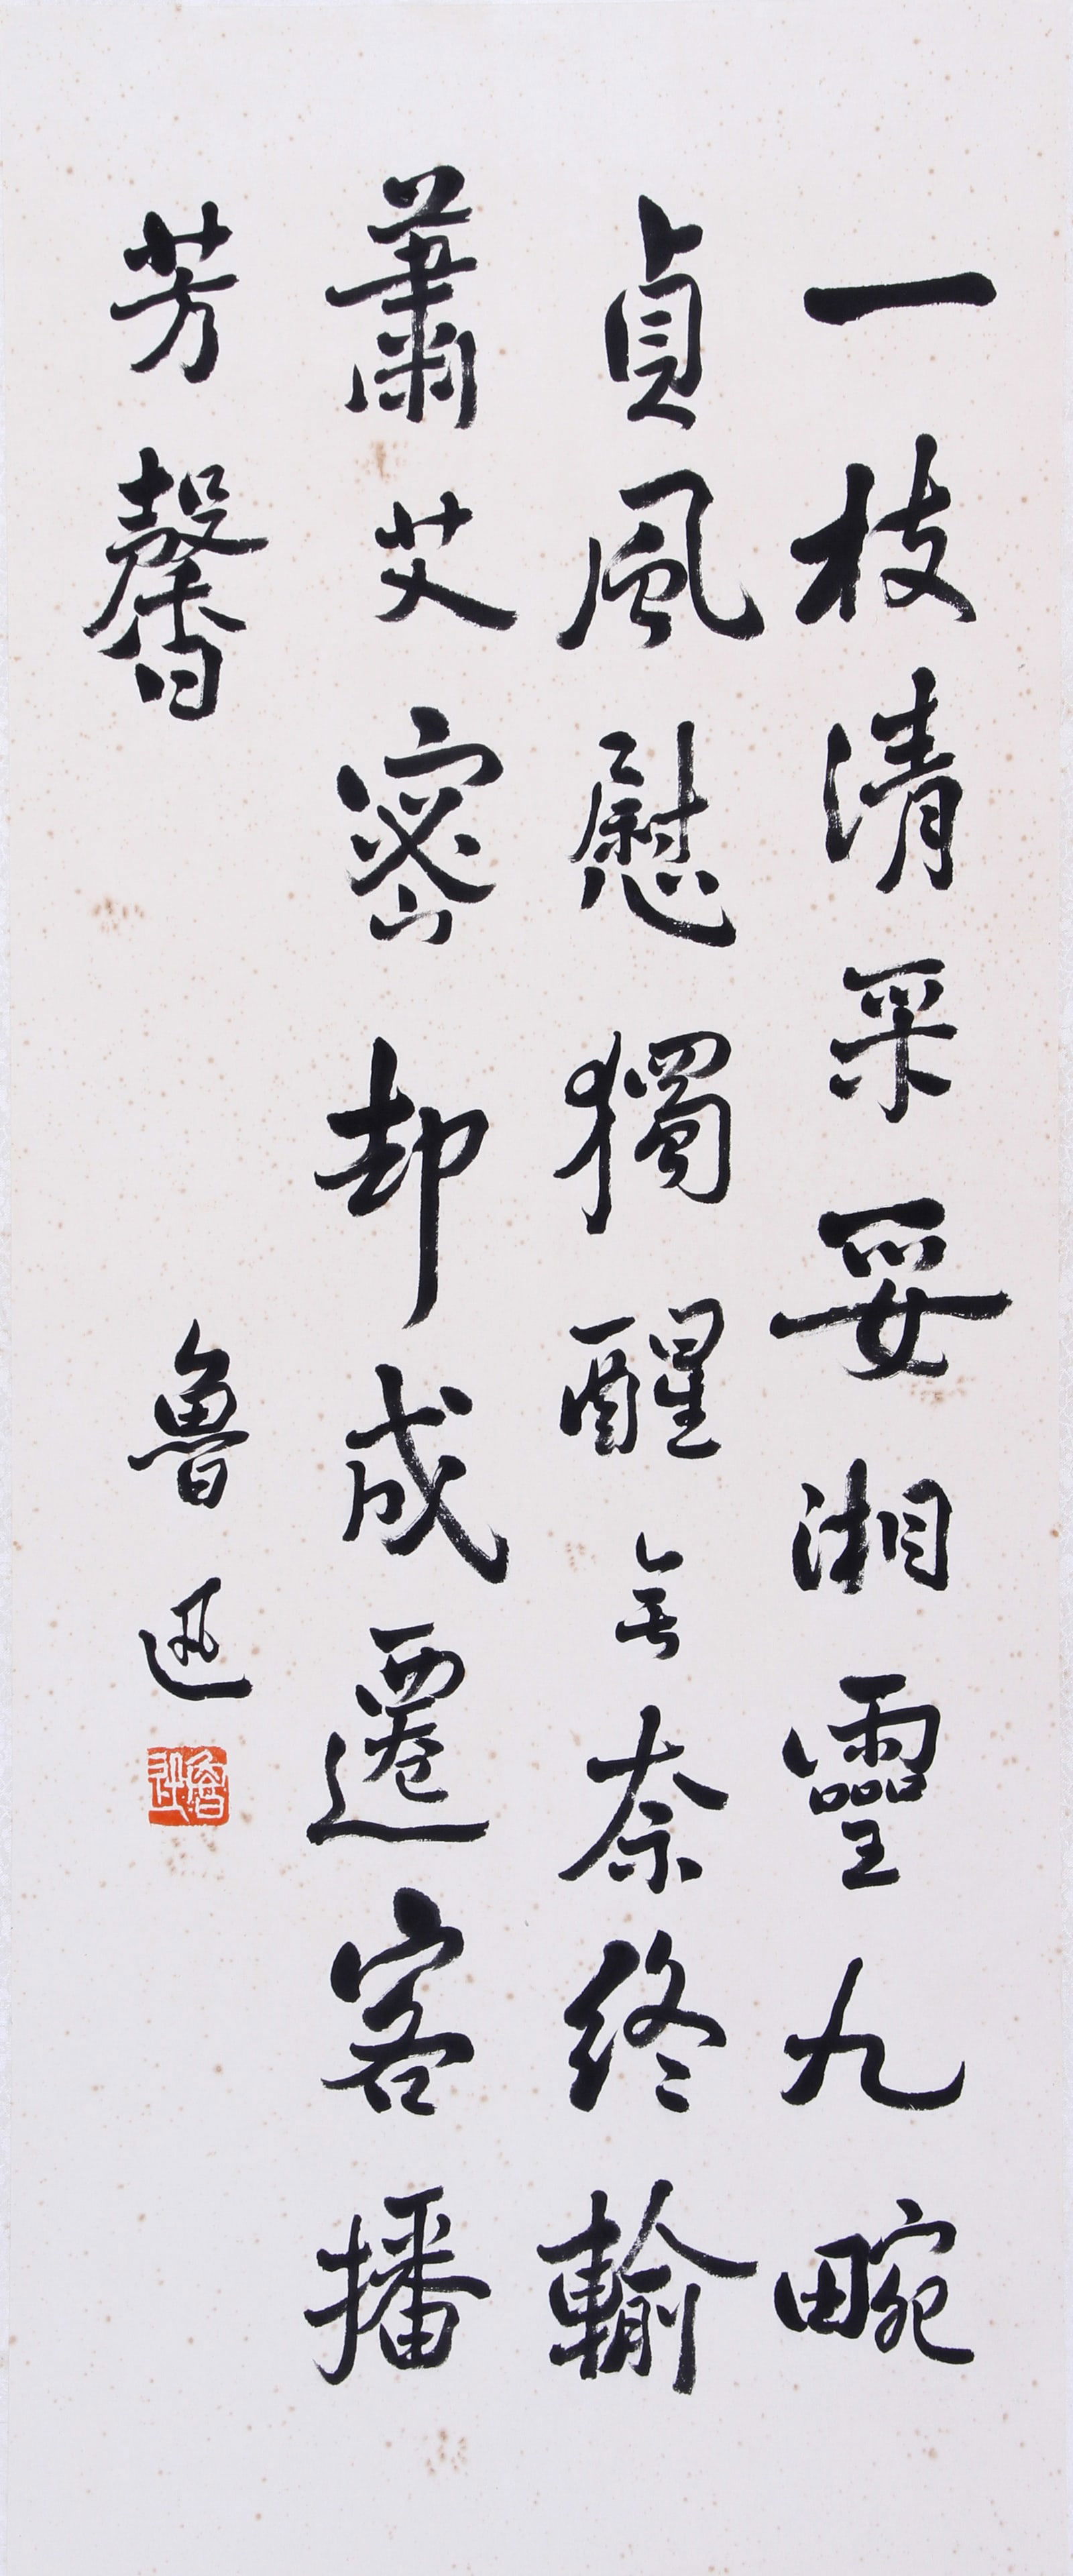 一枝清采妥湘靈九畹
貞風慰獨醒无奈終輸
蕭艾密却成遷客播
芳馨
魯迅
魯迅